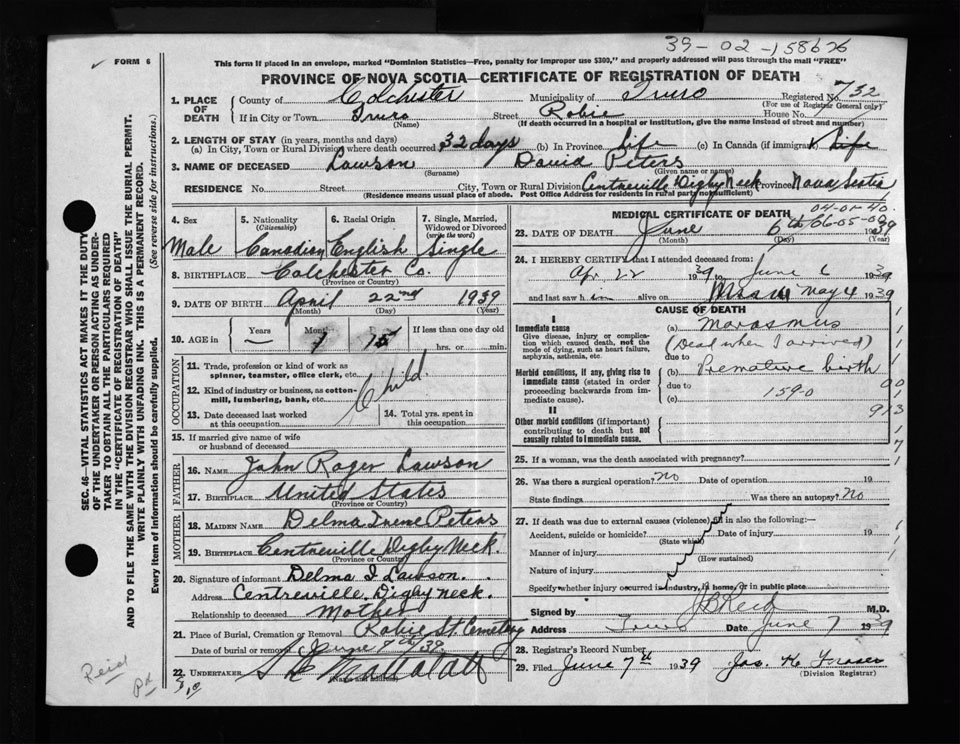 39-02-158626
FORM 6
This form if placed in an envelope, marked "Dominion Statistics—Free, penalty for improper use $300," and properly addressed will pass through the mail "FREE"
PROVINCE OF NOVA SCOTIA—CERTIFICATE OF REGISTRATION OF DEATH
1. PLACE OF DEATH County of Colchester Municipality of Truro Registered No. 732
(For use of Registrar General only)
If in City or Town Truro Street Robie House No.
(Name) (If death occurred in a hospital or institution, give the name instead of street and number)
2. LENGTH OF STAY (in years, months and days)
(a) In City, Town or Rural Division where death occurred 32 days (b) In Province Life (c) In Canada (if immigrant) Life
3. NAME OF DECEASED Lawson David Peters
(Surname) (Given name or names)
RESIDENCE No. Street City, Town or Rural Division Centreville Digby Neck Province Nova Scotia
(Residence means usual place of abode. Post Office Address for residents in rural parts not sufficient)
4. Sex Male
5. Nationality (Citizenship) Canadian
6. Racial Origin English
7. Single, Married, Widowed or Divorced (write the word) Single
8. BIRTHPLACE Colchester Co.
(Province or Country)
9. DATE OF BIRTH April 22nd 1939
(Month) (Day) (Year)
10. AGE in Years — Months 1 Days If less than one day old
hrs. or min.
OCCUPATION
11. Trade, profession or kind of work as spinner, teamster, office clerk, etc.
12. Kind of industry or business, as cotton-mill, lumbering, bank, etc. Child.
13. Date deceased last worked at this occupation
14. Total yrs. spent in this occupation
15. If married give name of wife or husband of deceased
FATHER
16. NAME John Roger Lawson
17. BIRTHPLACE United States
(Province or Country)
MOTHER
18. MAIDEN NAME Delma Irene Peters
19. BIRTHPLACE Centreville Digby Neck.
(Province or Country)
20. Signature of informant Delma I Lawson.
Address Centreville, Digby neck.
Relationship to deceased Mother
21. Place of Burial, Cremation or Removal Robie St. Cemetery
Date of burial or removal June 7 39
22. UNDERTAKER
(Name and address)
MEDICAL CERTIFICATE OF DEATH
04-01-40
23. DATE OF DEATH June 6th 1939
(Month) (Day) (Year)
24. I HEREBY CERTIFY that I attended deceased from:
Apr 22 1939 to June 6 1939
and last saw him alive on May 4 1939
CAUSE OF DEATH
I
Immediate cause
Give disease, injury or complication which caused death, not the mode of dying, such as heart failure, asphyxia, asthenia, etc.
(a) Marasmus
(Dead when I arrived)
due to
Morbid conditions, if any, giving rise to immediate cause (stated in order proceeding backwards from immediate cause).
(b) Premature birth
due to
(c) 159-0
913
II
Other morbid conditions (if important) contributing to death but not causally related to immediate cause.
25. If a woman, was the death associated with pregnancy?
26. Was there a surgical operation? No Date of operation 19
State findings Was there an autopsy? No
27. If death was due to external causes (violence) fill in also the following:—
Accident, suicide or homicide? Date of injury 19
(State which)
Manner of injury
(How sustained)
Nature of injury
Specify whether injury occurred in industry, in home, or in public place
Signed by J B Reid M.D.
Address Truro Date June 7 1939
28. Registrar's Record Number
29. Filed June 7th 1939 Jas. H. Fraser
(Division Registrar)
SEC. 46—VITAL STATISTICS ACT MAKES IT THE DUTY
OF THE UNDERTAKER OR PERSON ACTING AS UNDERTAKER
TO OBTAIN ALL THE PARTICULARS REQUIRED
IN THE "CERTIFICATE OF REGISTRATION OF DEATH"
AND TO FILE THE SAME WITH THE DIVISION REGISTRAR WHO SHALL ISSUE THE BURIAL PERMIT.
WRITE PLAINLY WITH UNFADING INK. THIS IS A PERMANENT RECORD.
Every item of information should be carefully supplied. (See reverse side for instructions.)
Reid
Pd